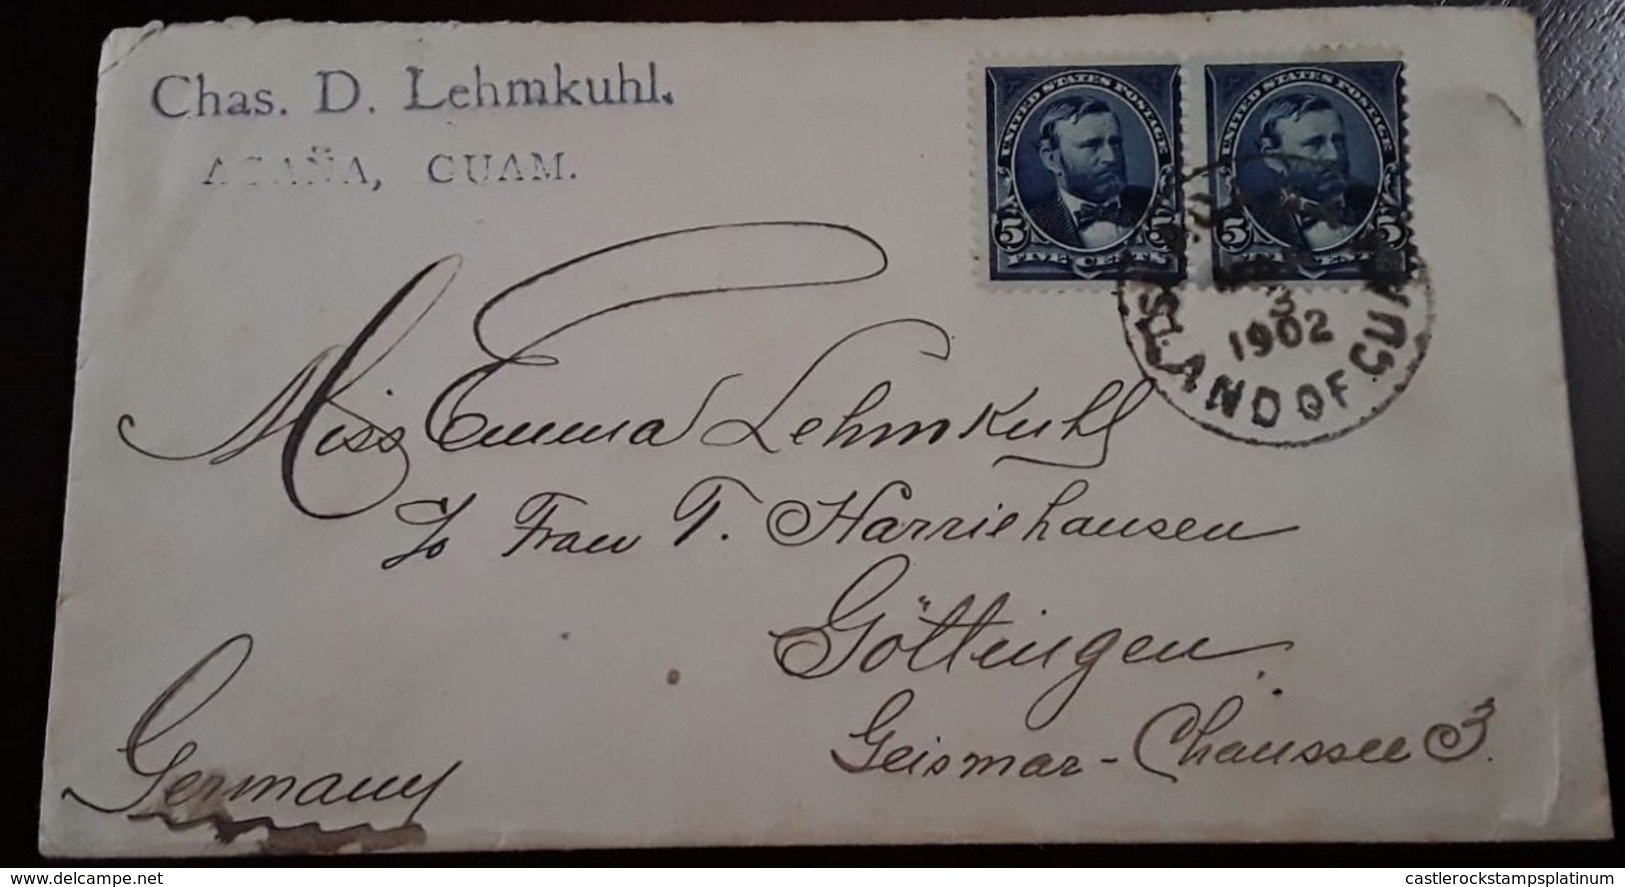 Chas. D. Lehmkuhl.
AGAÑA, GUAM.
UNITED STATES POSTAGE
5 5
FIVE CENTS
UNITED STATES POSTAGE
5 5
CENTS
3
1902
ISLAND OF GUA
Miss Emma Lehmkuhl
c/o Frau T. Harriehausen
Göttingen
Geismar-Chaussee 3.
Germany
castlerockstampsplatinum
delcampe.net